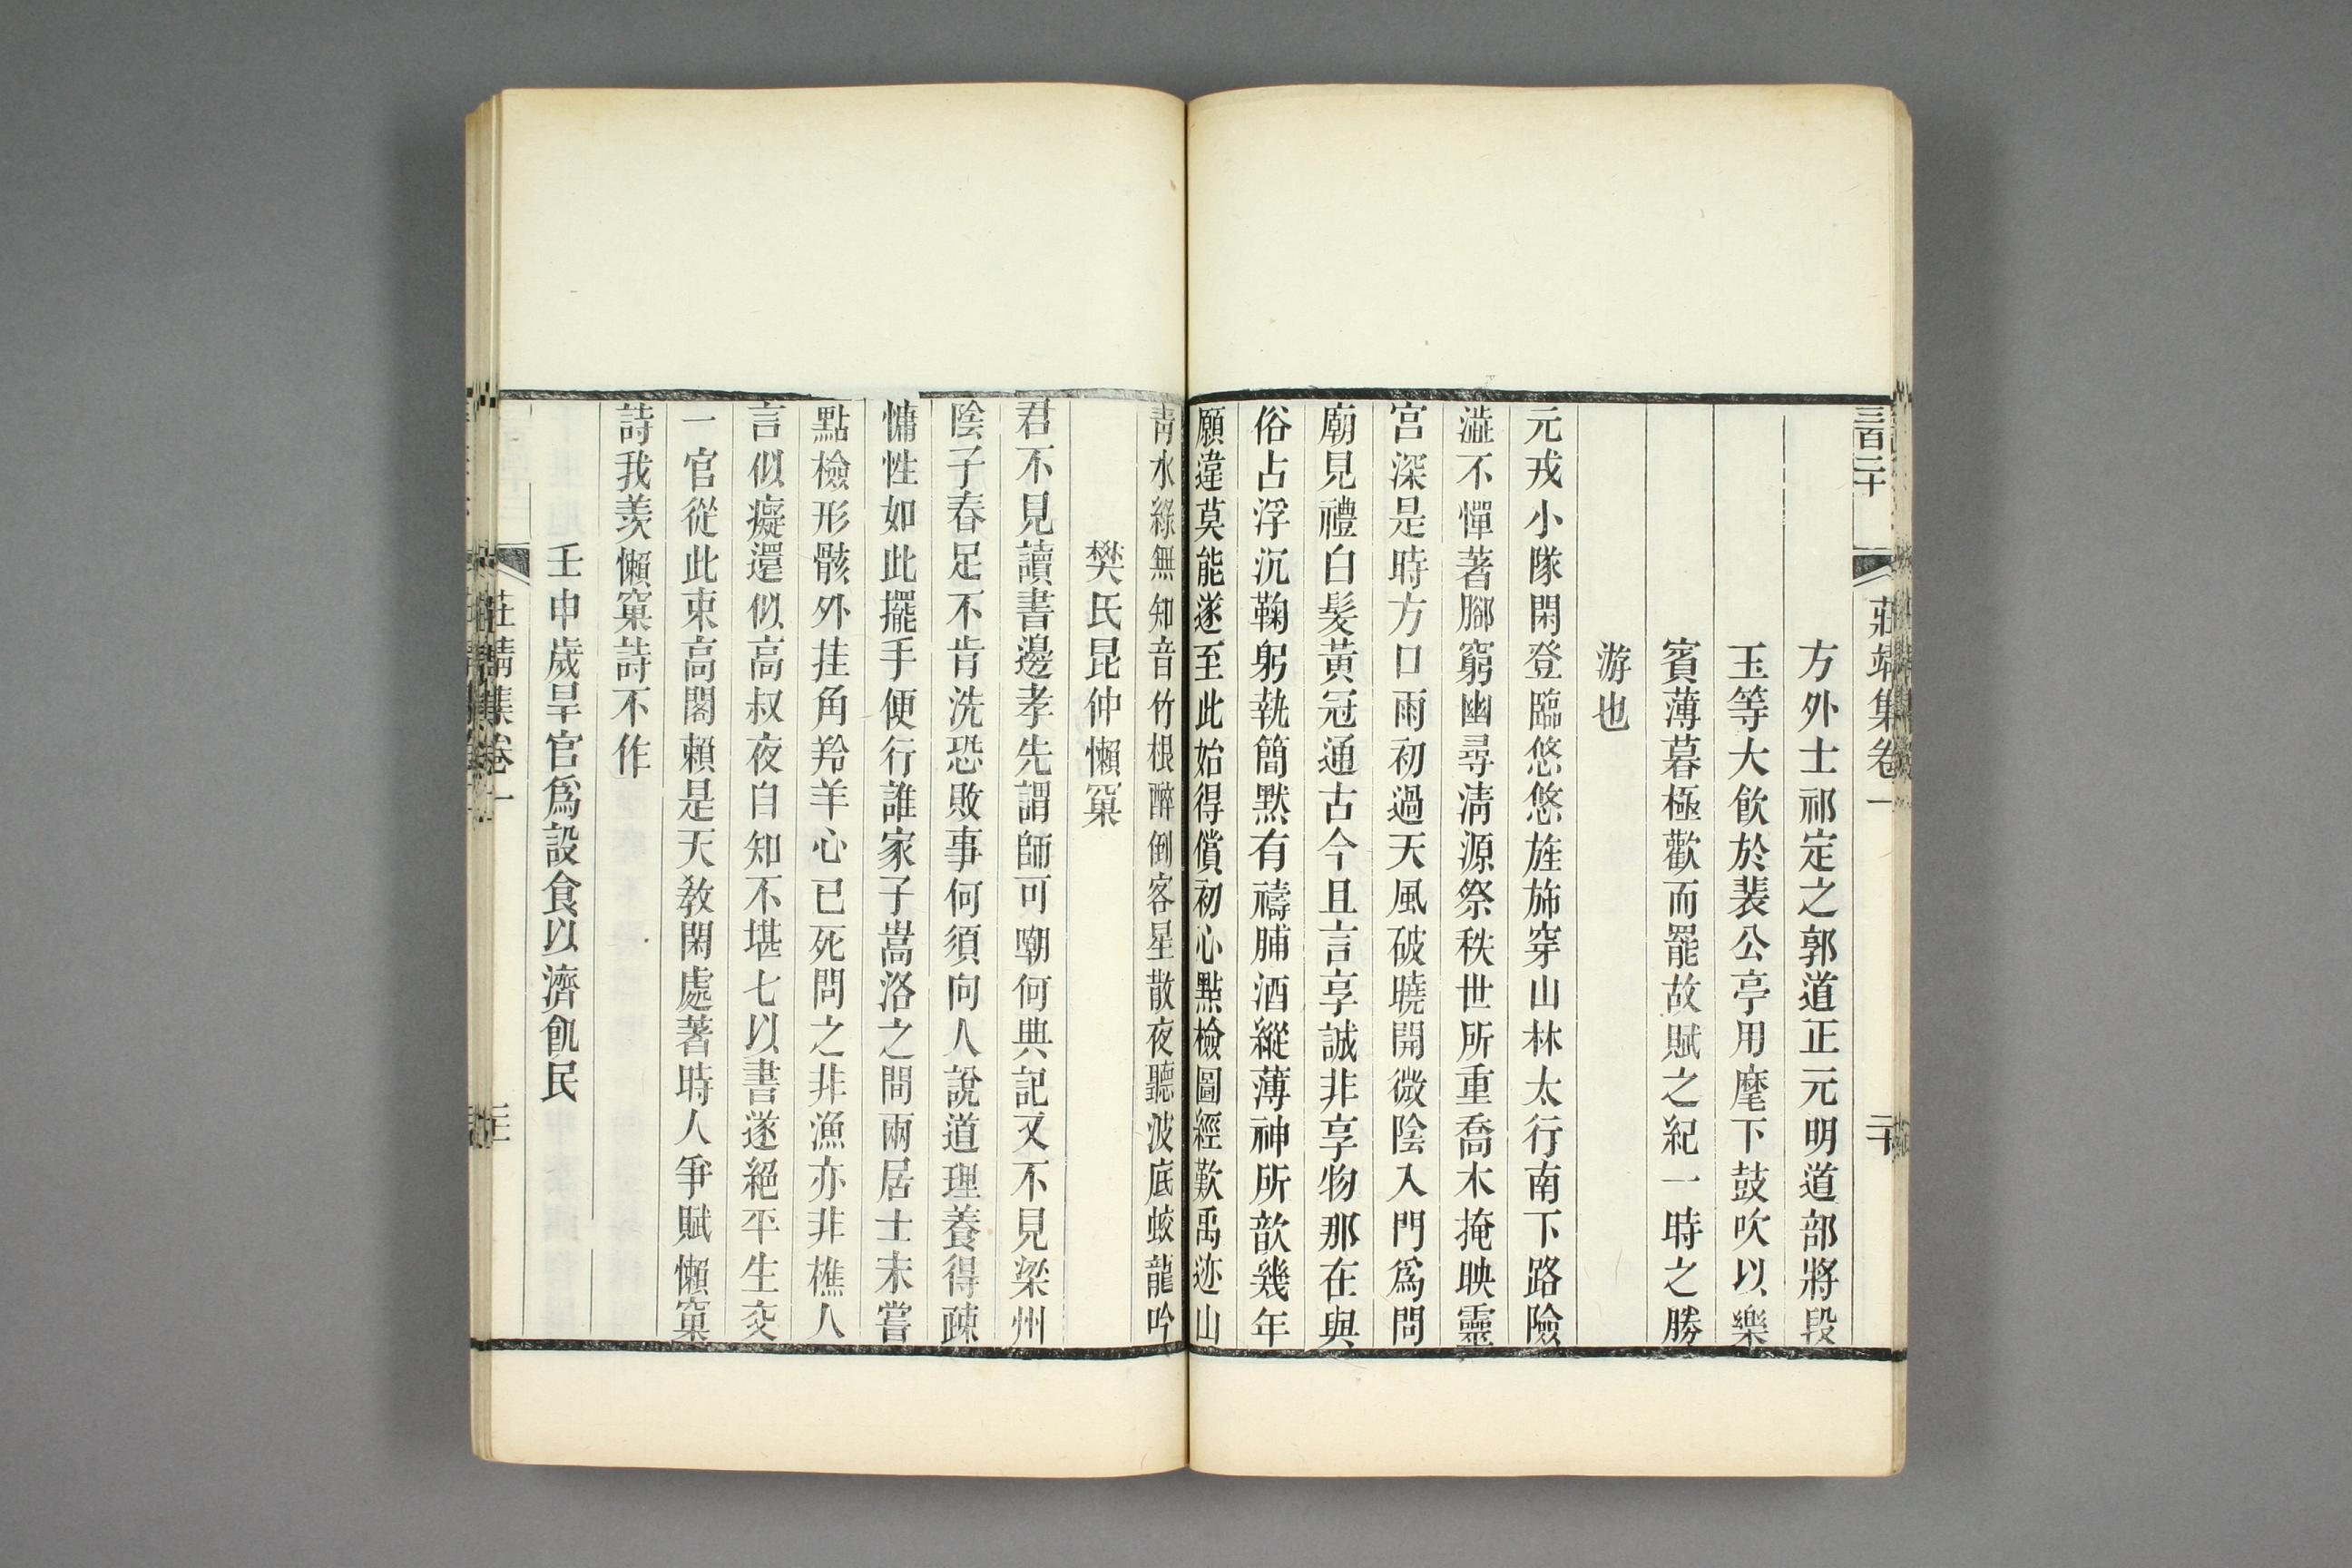 莊靖集卷一
二十
方外士祁定之郭道正元明道部將段
玉等大飲於裴公亭用麾下鼓吹以樂
賓薄暮極歡而罷故賦之紀一時之勝
游也
元戎小隊閑登臨悠悠旌旆穿山林太行南下路險
澁不憚著腳窮幽尋淸源祭秩世所重喬木掩映靈
宮深是時方口雨初過天風破曉開微陰入門爲問
廟見禮白髮黃冠通古今且言享誠非享物那在與
俗占浮沉鞠躬執簡默有禱脯酒縱薄神所歆幾年
願違莫能遂至此始得償初心點檢圖經歎禹迹山
靑水綠無知音竹根醉倒客星散夜聽波底蛟龍吟
樊氏昆仲懶窠
君不見讀書邊孝先謂師可嘲何典記又不見梁州
陰子春足不肯洗恐敗事何須向人說道理養得疎
慵性如此擺手便行誰家子嵩洛之間兩居士未嘗
點檢形骸外挂角羚羊心已死問之非漁亦非樵人
言似癡還似高叔夜自知不堪七以書遂絕平生交
一官從此束高閣賴是天敎閑處著時人爭賦懶窠
詩我羡懶窠詩不作
壬申歲旱官爲設食以濟飢民
莊靖集卷一